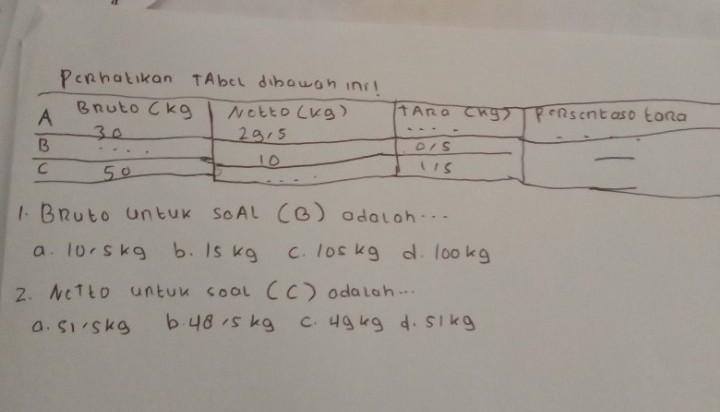 Perhatikan tabel dibawah ini!
A Bruto (kg Netto (kg) tara (kg) Persentase tara
30 29,5 .... ....
B .... 10 0,5 —
C 50 .... 1,5 —
1. Bruto untuk soal (B) adalah...
a. 10,5 kg b. 15 kg c. 105 kg d. 100 kg
2. Netto untuk soal (C) adalah...
a. 51,5 kg b. 48,5 kg c. 49 kg d. 51 kg